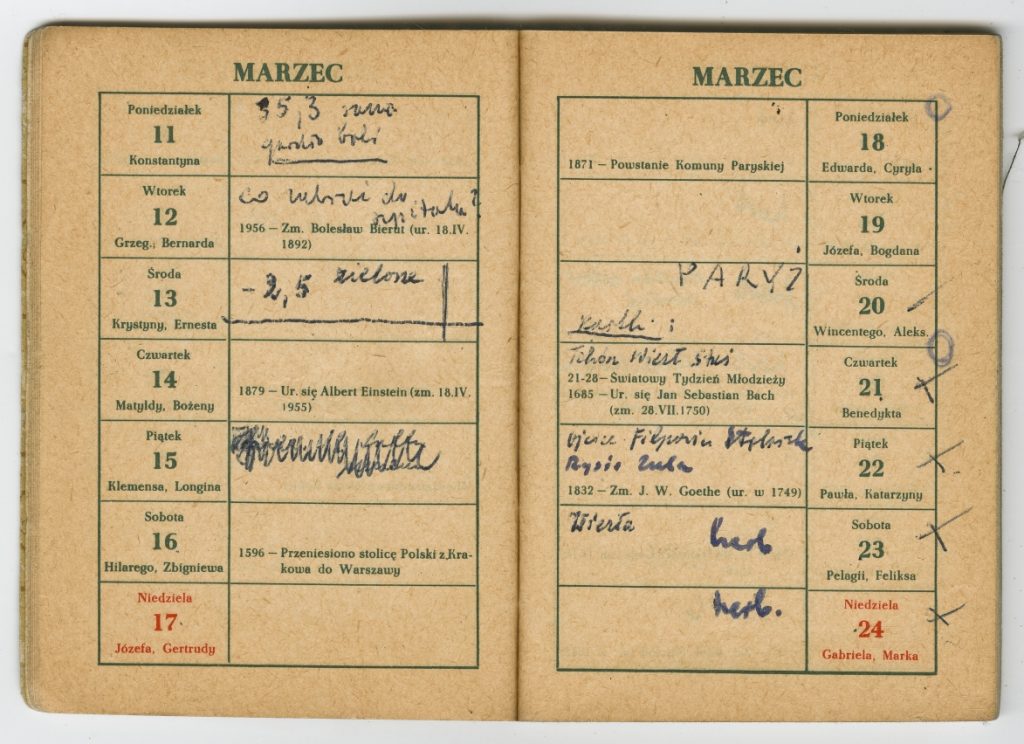 MARZEC
Poniedziałek
11
Konstantyna
35,3 rano
gardło boli
Wtorek
12
Grzeg., Bernarda
co zabrać do
szpitala?
1956 — Zm. Bolesław Bierut (ur. 18.IV.
1892)
Środa
13
Krystyny, Ernesta
- 2,5 zielone
Czwartek
14
Matyldy, Bożeny
1879 — Ur. się Albert Einstein (zm. 18.IV.
1955)
Piątek
15
Klemensa, Longina
Sobota
16
Hilarego, Zbigniewa
1596 — Przeniesiono stolicę Polski z Kra-
kowa do Warszawy
Niedziela
17
Józefa, Gertrudy
MARZEC
Poniedziałek
18
Edwarda, Cyryla
1871 — Powstanie Komuny Paryskiej
Wtorek
19
Józefa, Bogdana
Środa
20
Wincentego, Aleks.
PARYŻ
kartki:
Czwartek
21
Benedykta
21-28 — Światowy Tydzień Młodzieży
1685 — Ur. się Jan Sebastian Bach
(zm. 28.VII.1750)
Piątek
22
Pawła, Katarzyny
1832 — Zm. J. W. Goethe (ur. w 1749)
Sobota
23
Pelagii, Feliksa
Wierta
herb
Niedziela
24
Gabriela, Marka
herb.